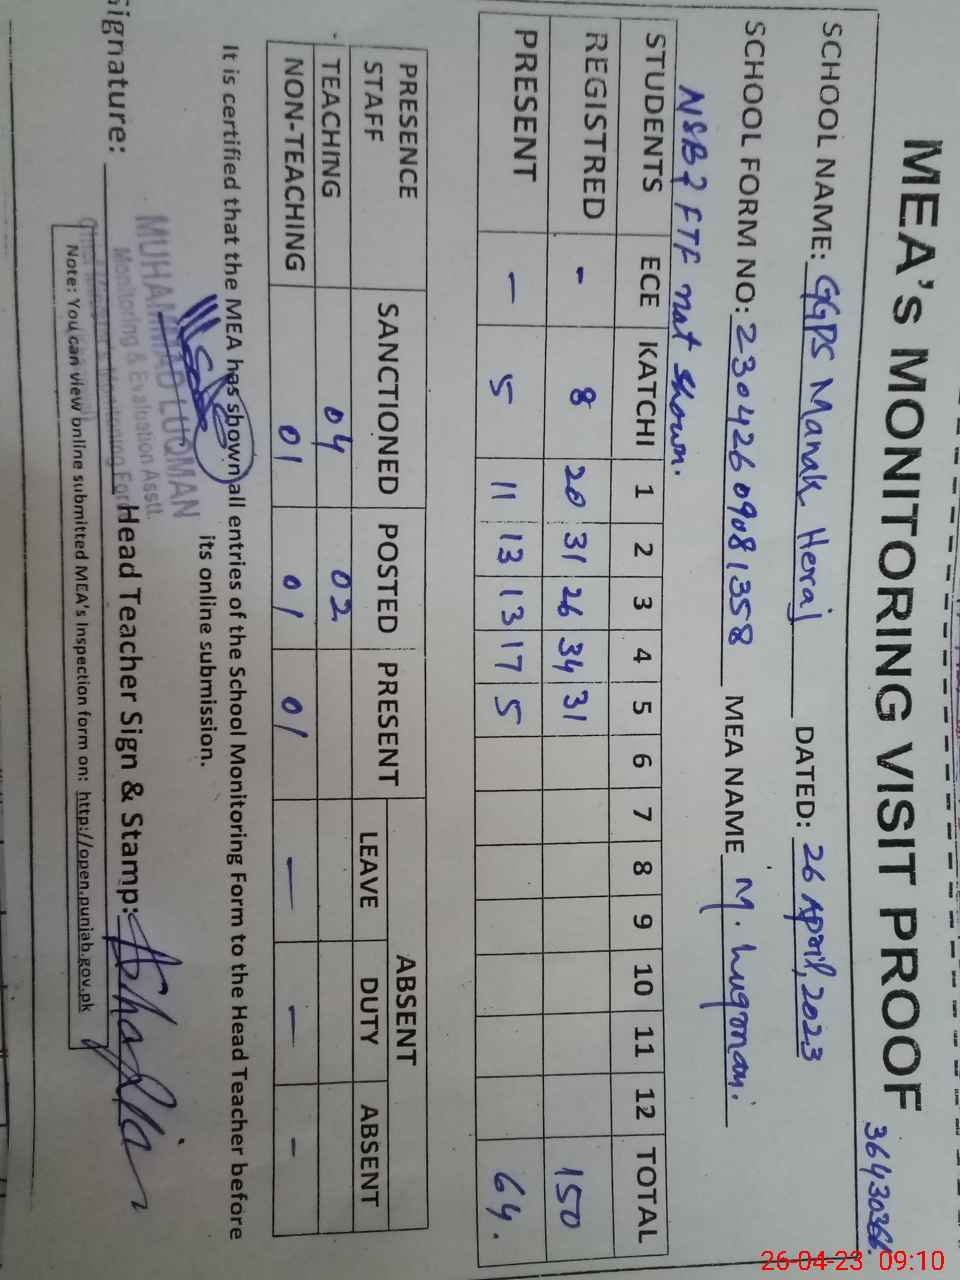 MEA's MONITORING VISIT PROOF
SCHOOL NAME: GGPS Manak Heraj DATED: 26 April, 2023
SCHOOL FORM NO: 23042609081358 MEA NAME M. Luqman.
NSB & FTF not shown.
STUDENTS ECE KATCHI 1 2 3 4 5 6 7 8 9 10 11 12 TOTAL
REGISTRED - 8 20 31 26 34 31 150
PRESENT - 5 11 13 13 17 5 64.
PRESENCE STAFF SANCTIONED POSTED PRESENT ABSENT
LEAVE DUTY ABSENT
TEACHING 04 02
NON-TEACHING 01 01 01 - - -
It is certified that the MEA has shown all entries of the School Monitoring Form to the Head Teacher before
its online submission.
MUHAMMAD LUQMAN
Monitoring & Evaluation Asstt.
Signature: Head Teacher Sign & Stamp:
Note: You can view online submitted MEA's Inspection form on: http://open.punjab.gov.pk
26-04-23 09:10